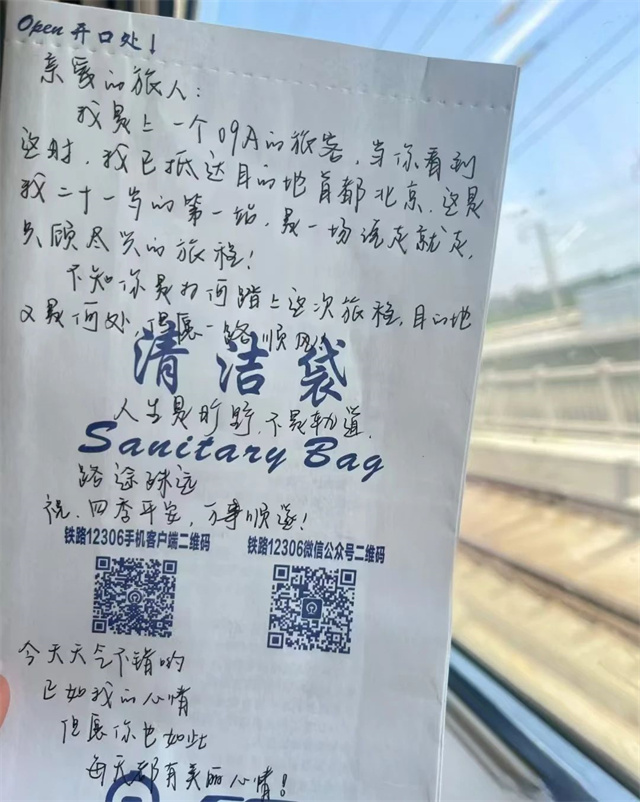 Open 开口处↓
亲爱的旅人：
我是上一个09A的旅客，当你看到
这时，我已抵达目的地首都北京，这是
我二十一岁的第一站，是一场说走就走，
只顾尽兴的旅程！
不知你是为何踏上这次旅程，目的地
又是何处，但愿一路顺风！
清洁袋
人生是旷野，不是轨道，
Sanitary Bag
路途殊远
祝，四季平安，万事顺遂！
铁路12306手机客户端二维码 铁路12306微信公众号二维码
今天天气不错哟
正如我的心情
但愿你也如此
每天都有美丽心情！